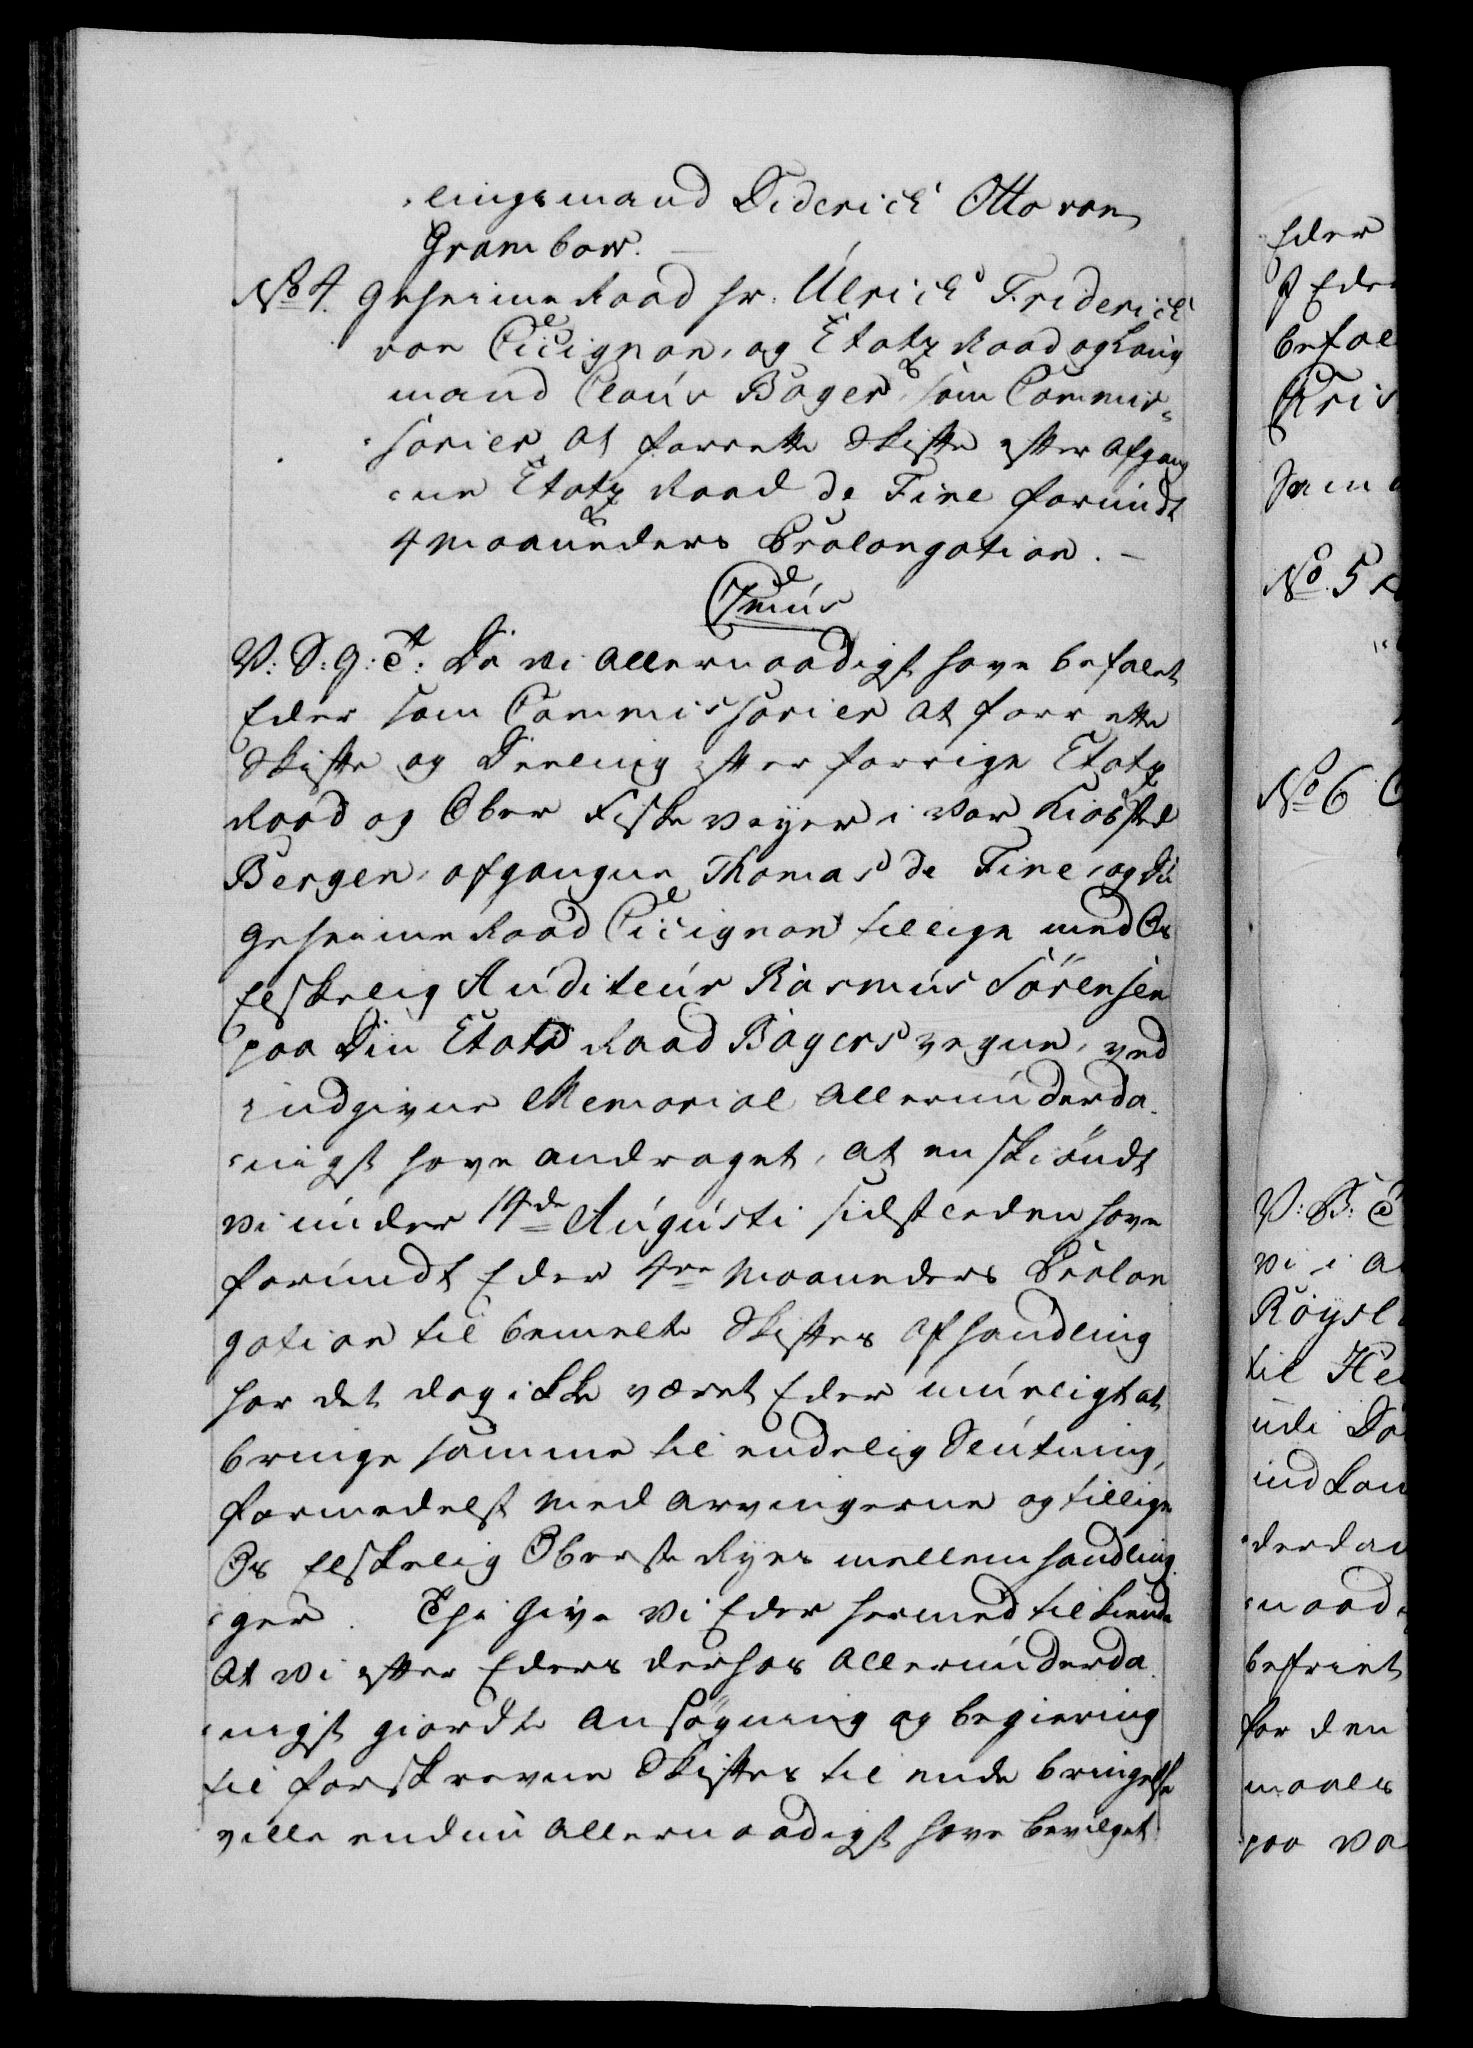 lingsmand Diderich Otto von
Grambow. —
No 4. Geheime Raad Hr. Ulrich Friderich
von Cicignon, og Etatz Raad og Laug
mand Claus Bager, som Commis-
sarier at forrette Skifte efter afgang
ne Etatz Raad de Fine forundt
4 Maaneders Prolongation. —
V: S: G: T. Da vi allernaadigst have befalet
Eder som Commissarier at forrette
Skifte og Deeling efter forrige Etatz
Raad og Ober Fiske veyer i vor Kiøbsted
Bergen, afgangne Thomas de Fine, og Du
Geheime Raad Cicignon tillige med Os
Elskelig Auditeur Rasmus Sörensen
paa Din Etats Raad Bagers vegne, ved
indgivne Memorial allerunderda
nigst have andraget, at enskiöndt
vi under 14de Augusti sidstleden have
forundt Eder 4re Maaneders Prolon
gation til bemelte Skiftes afhandling
har det dog ikke været Eder mueligt at
bringe samme til endelig Slutning,
formedelst Med arvingerne og tillige
Os Elskelig Oberste Ryes mellemhandling
ger. Thi Give Vi Eder hermed tilkiende
at vi efter Eders derhos allerunderda
nigst giordte ansøgning og begiering
til forskrevne Skiftes til ende bringelse
ville endnu allernaadigst have bevilget
Eder
befal
No 5
No 6
V: S: T
vi i
til
udi
indkom
derdan
naad
befriet
for den
maals
paa